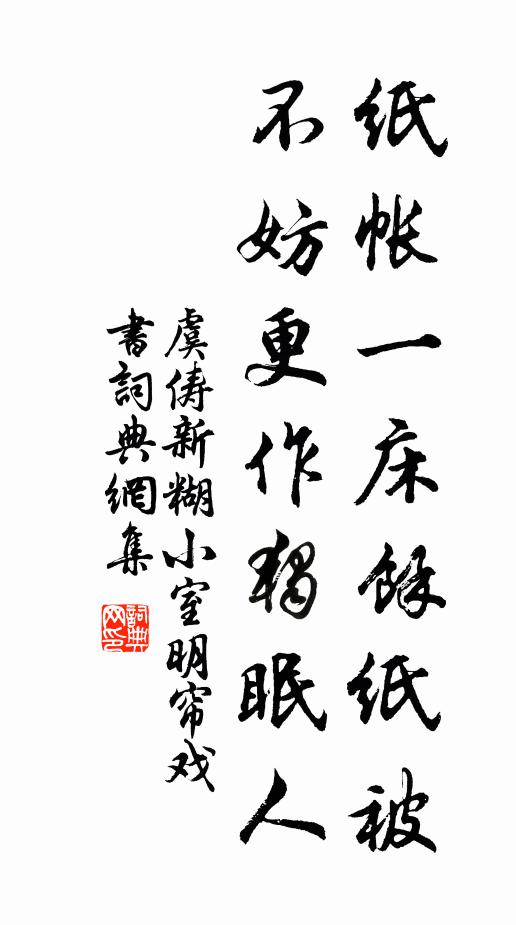 纸帐一床馀纸被
不妨更作独眠人
虞俦新糊小室明帘戏
書詞典網集
詞典网印